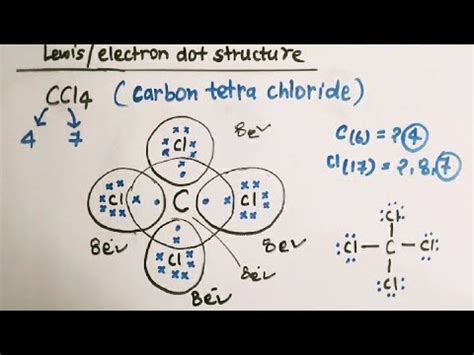 Lewis/electron dot structure
CCl4 (carbon tetra chloride)
4 7
8e✓
C(6) = ?(4)
Cl(17) = ?,8,(7)
Cl
Cl C Cl
Cl
8e✓ 8e✓
8e✓
8e✓
Cl
Cl–C–Cl
Cl